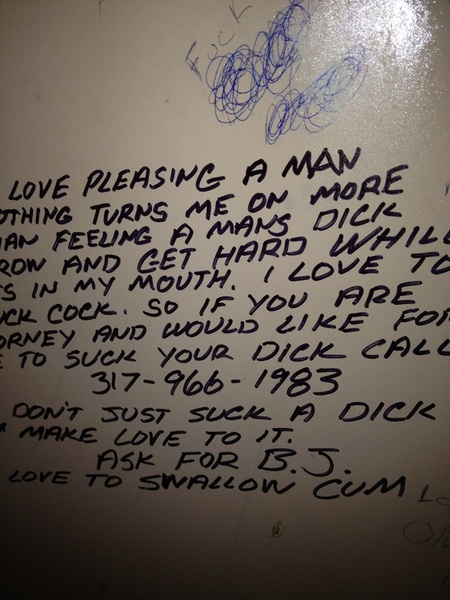 Fuck
LOVE PLEASING A MAN
OTHING TURNS ME ON MORE
HAN FEELING A MANS DICK
ROW AND GET HARD WHILE
S IN MY MOUTH. I LOVE TO
UCK COCK. SO IF YOU ARE
ORNEY AND WOULD LIKE FOR
E TO SUCK YOUR DICK CALL
317-966-1983
DON'T JUST SUCK A DICK
MAKE LOVE TO IT.
ASK FOR B.J.
LOVE TO SWALLOW CUM